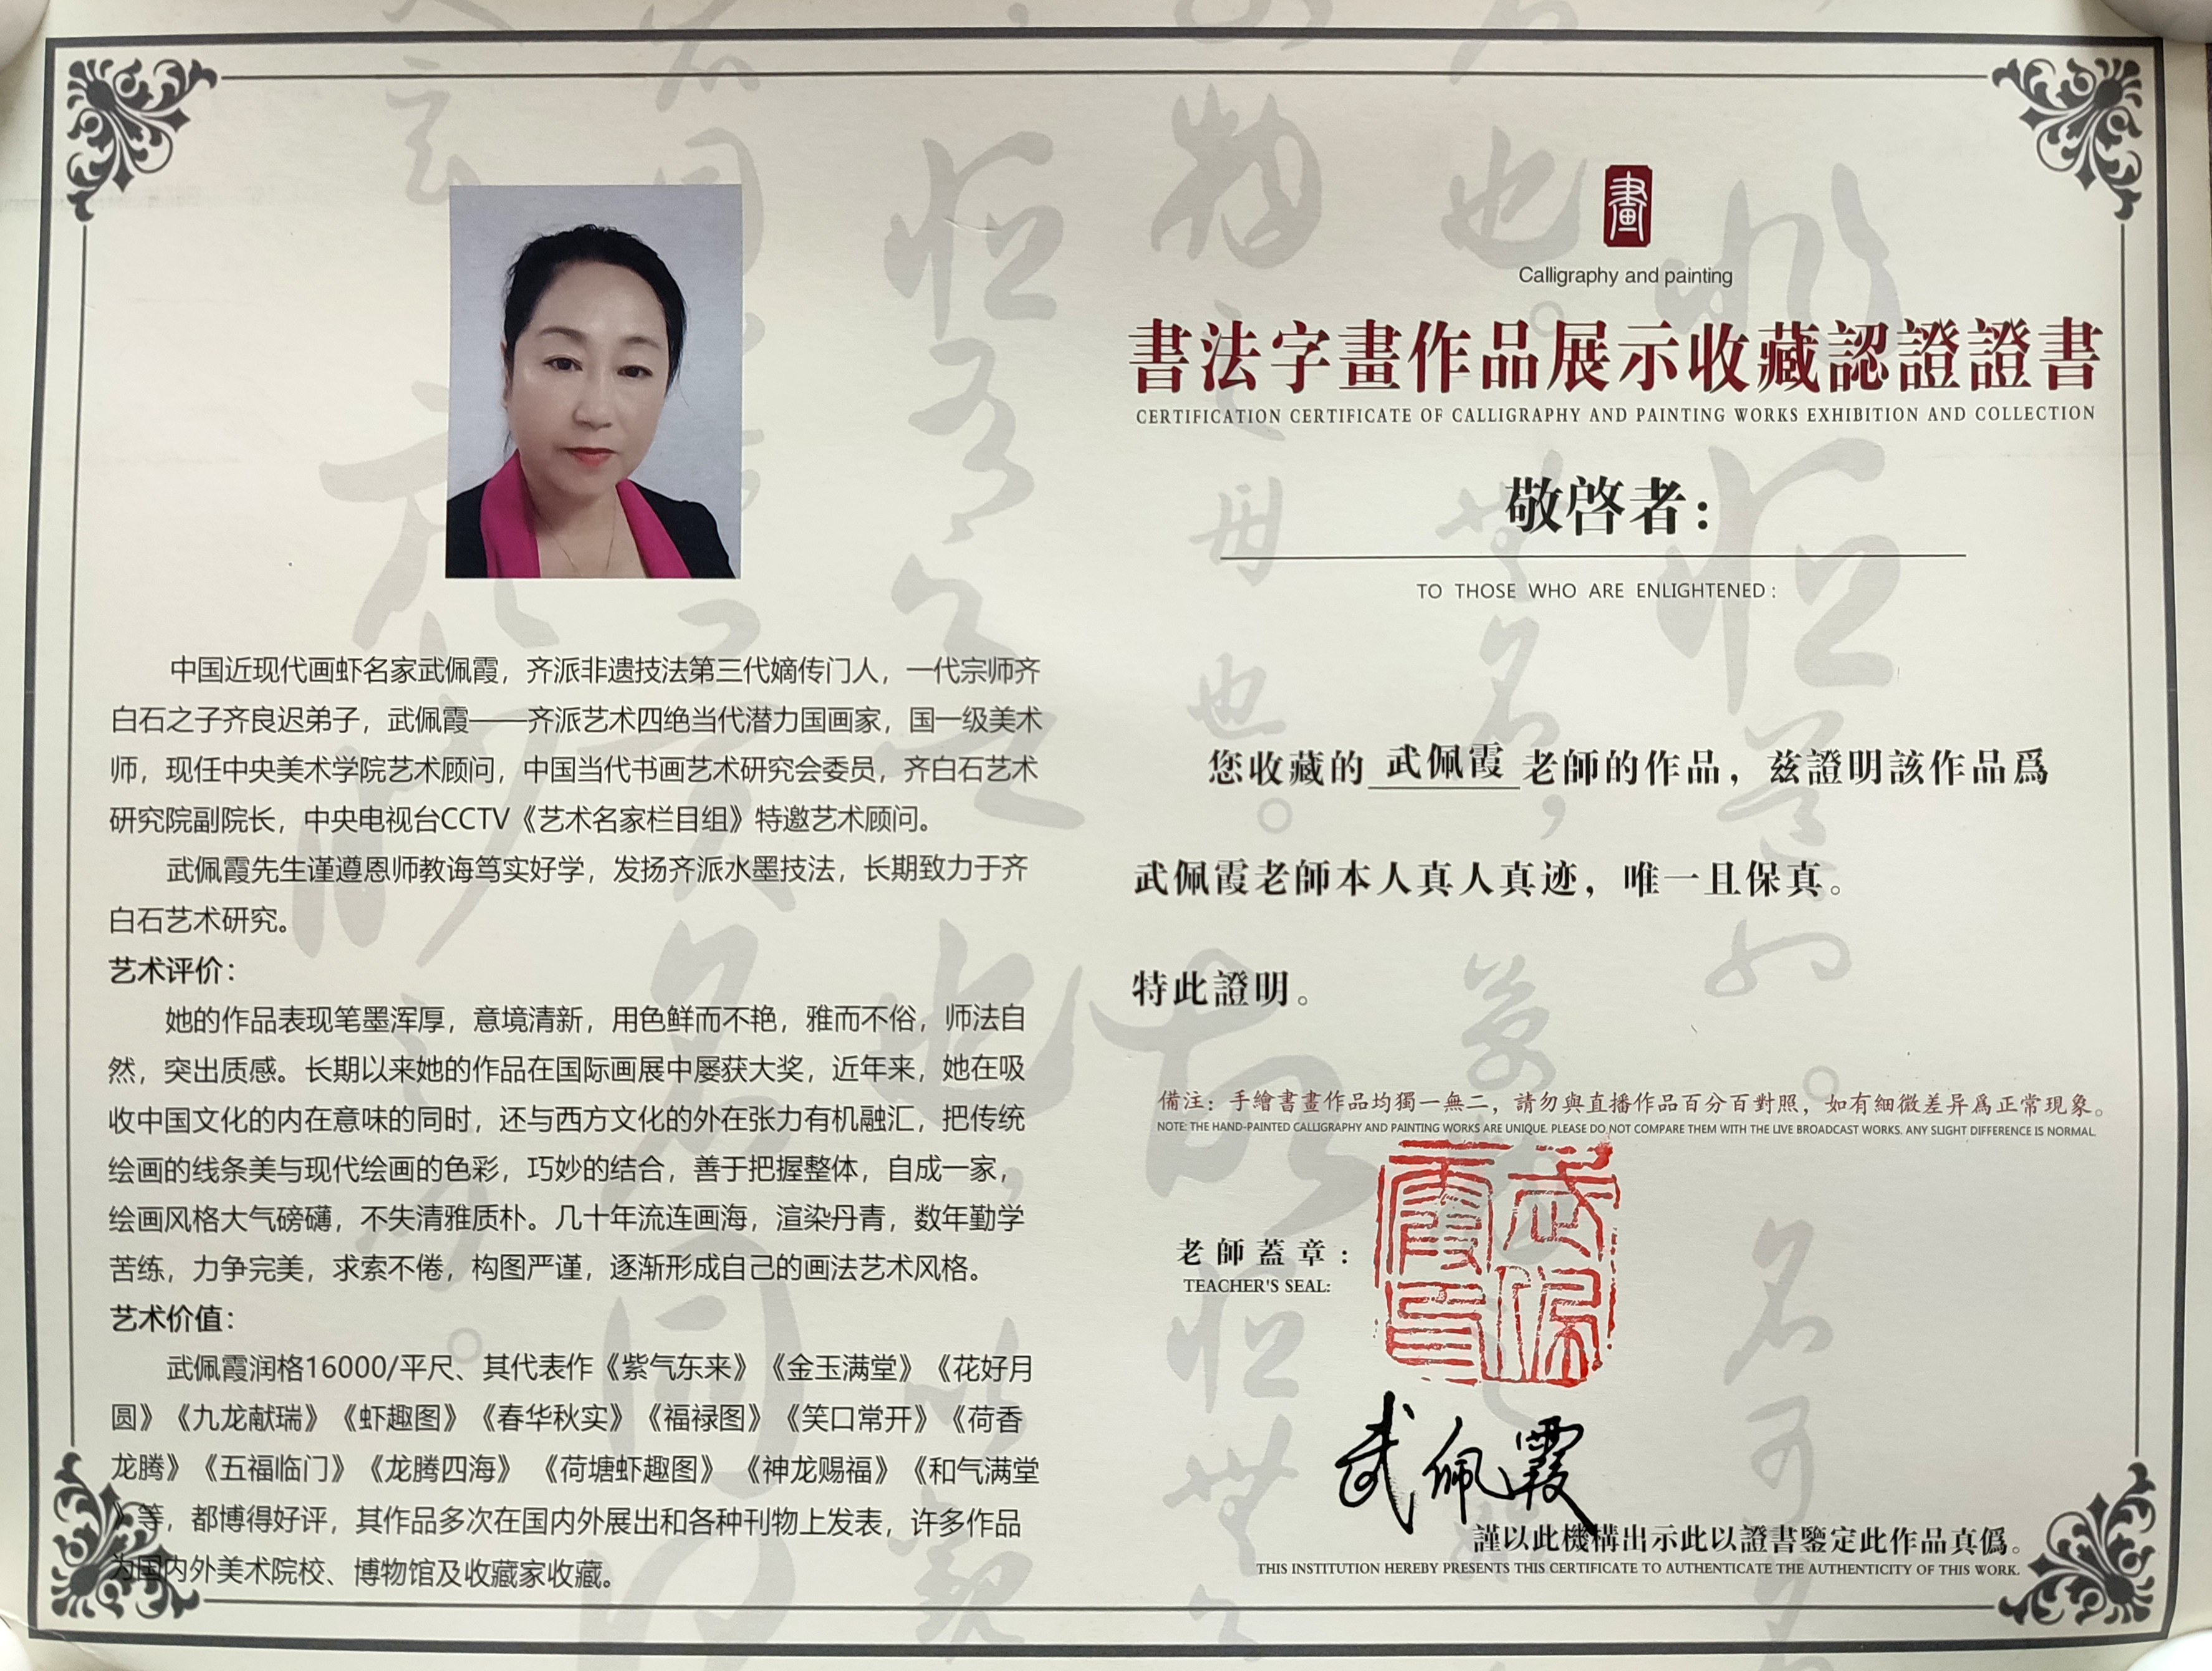 中国近现代画虾名家武佩霞，齐派非遗技法第三代嫡传门人，一代宗师齐
白石之子齐良迟弟子，武佩霞——齐派艺术四绝当代潜力国画家，国一级美术
师，现任中央美术学院艺术顾问，中国当代书画艺术研究会委员，齐白石艺术
研究院副院长，中央电视台CCTV《艺术名家栏目组》特邀艺术顾问。
武佩霞先生谨遵恩师教诲笃实好学，发扬齐派水墨技法，长期致力于齐
白石艺术研究。
艺术评价：
她的作品表现笔墨浑厚，意境清新，用色鲜而不艳，雅而不俗，师法自
然，突出质感。长期以来她的作品在国际画展中屡获大奖，近年来，她在吸
收中国文化的内在意味的同时，还与西方文化的外在张力有机融汇，把传统
绘画的线条美与现代绘画的色彩，巧妙的结合，善于把握整体，自成一家，
绘画风格大气磅礴，不失清雅质朴。几十年流连画海，渲染丹青，数年勤学
苦练，力争完美，求索不倦，构图严谨，逐渐形成自己的画法艺术风格。
艺术价值：
武佩霞润格16000/平尺、其代表作《紫气东来》《金玉满堂》《花好月
圆》《九龙献瑞》《虾趣图》《春华秋实》《福禄图》《笑口常开》《荷香
龙腾》《五福临门》《龙腾四海》《荷塘虾趣图》《神龙赐福》《和气满堂
》等，都博得好评，其作品多次在国内外展出和各种刊物上发表，许多作品
为国内外美术院校、博物馆及收藏家收藏。
畫
Calligraphy and painting
書法字畫作品展示收藏認證證書
CERTIFICATION CERTIFICATE OF CALLIGRAPHY AND PAINTING WORKS EXHIBITION AND COLLECTION
敬啓者：
TO THOSE WHO ARE ENLIGHTENED :
您收藏的 武佩霞 老師的作品，兹證明該作品爲
武佩霞老師本人真人真迹，唯一且保真。
特此證明。
備注：手繪書畫作品均獨一無二，請勿與直播作品百分百對照，如有細微差异爲正常現象。
NOTE: THE HAND-PAINTED CALLIGRAPHY AND PAINTING WORKS ARE UNIQUE. PLEASE DO NOT COMPARE THEM WITH THE LIVE BROADCAST WORKS. ANY SLIGHT DIFFERENCE IS NORMAL.
老師蓋章：
TEACHER'S SEAL:
武佩霞印
武佩霞
謹以此機構出示此以證書鑒定此作品真僞。
THIS INSTITUTION HEREBY PRESENTS THIS CERTIFICATE TO AUTHENTICATE THE AUTHENTICITY OF THIS WORK.